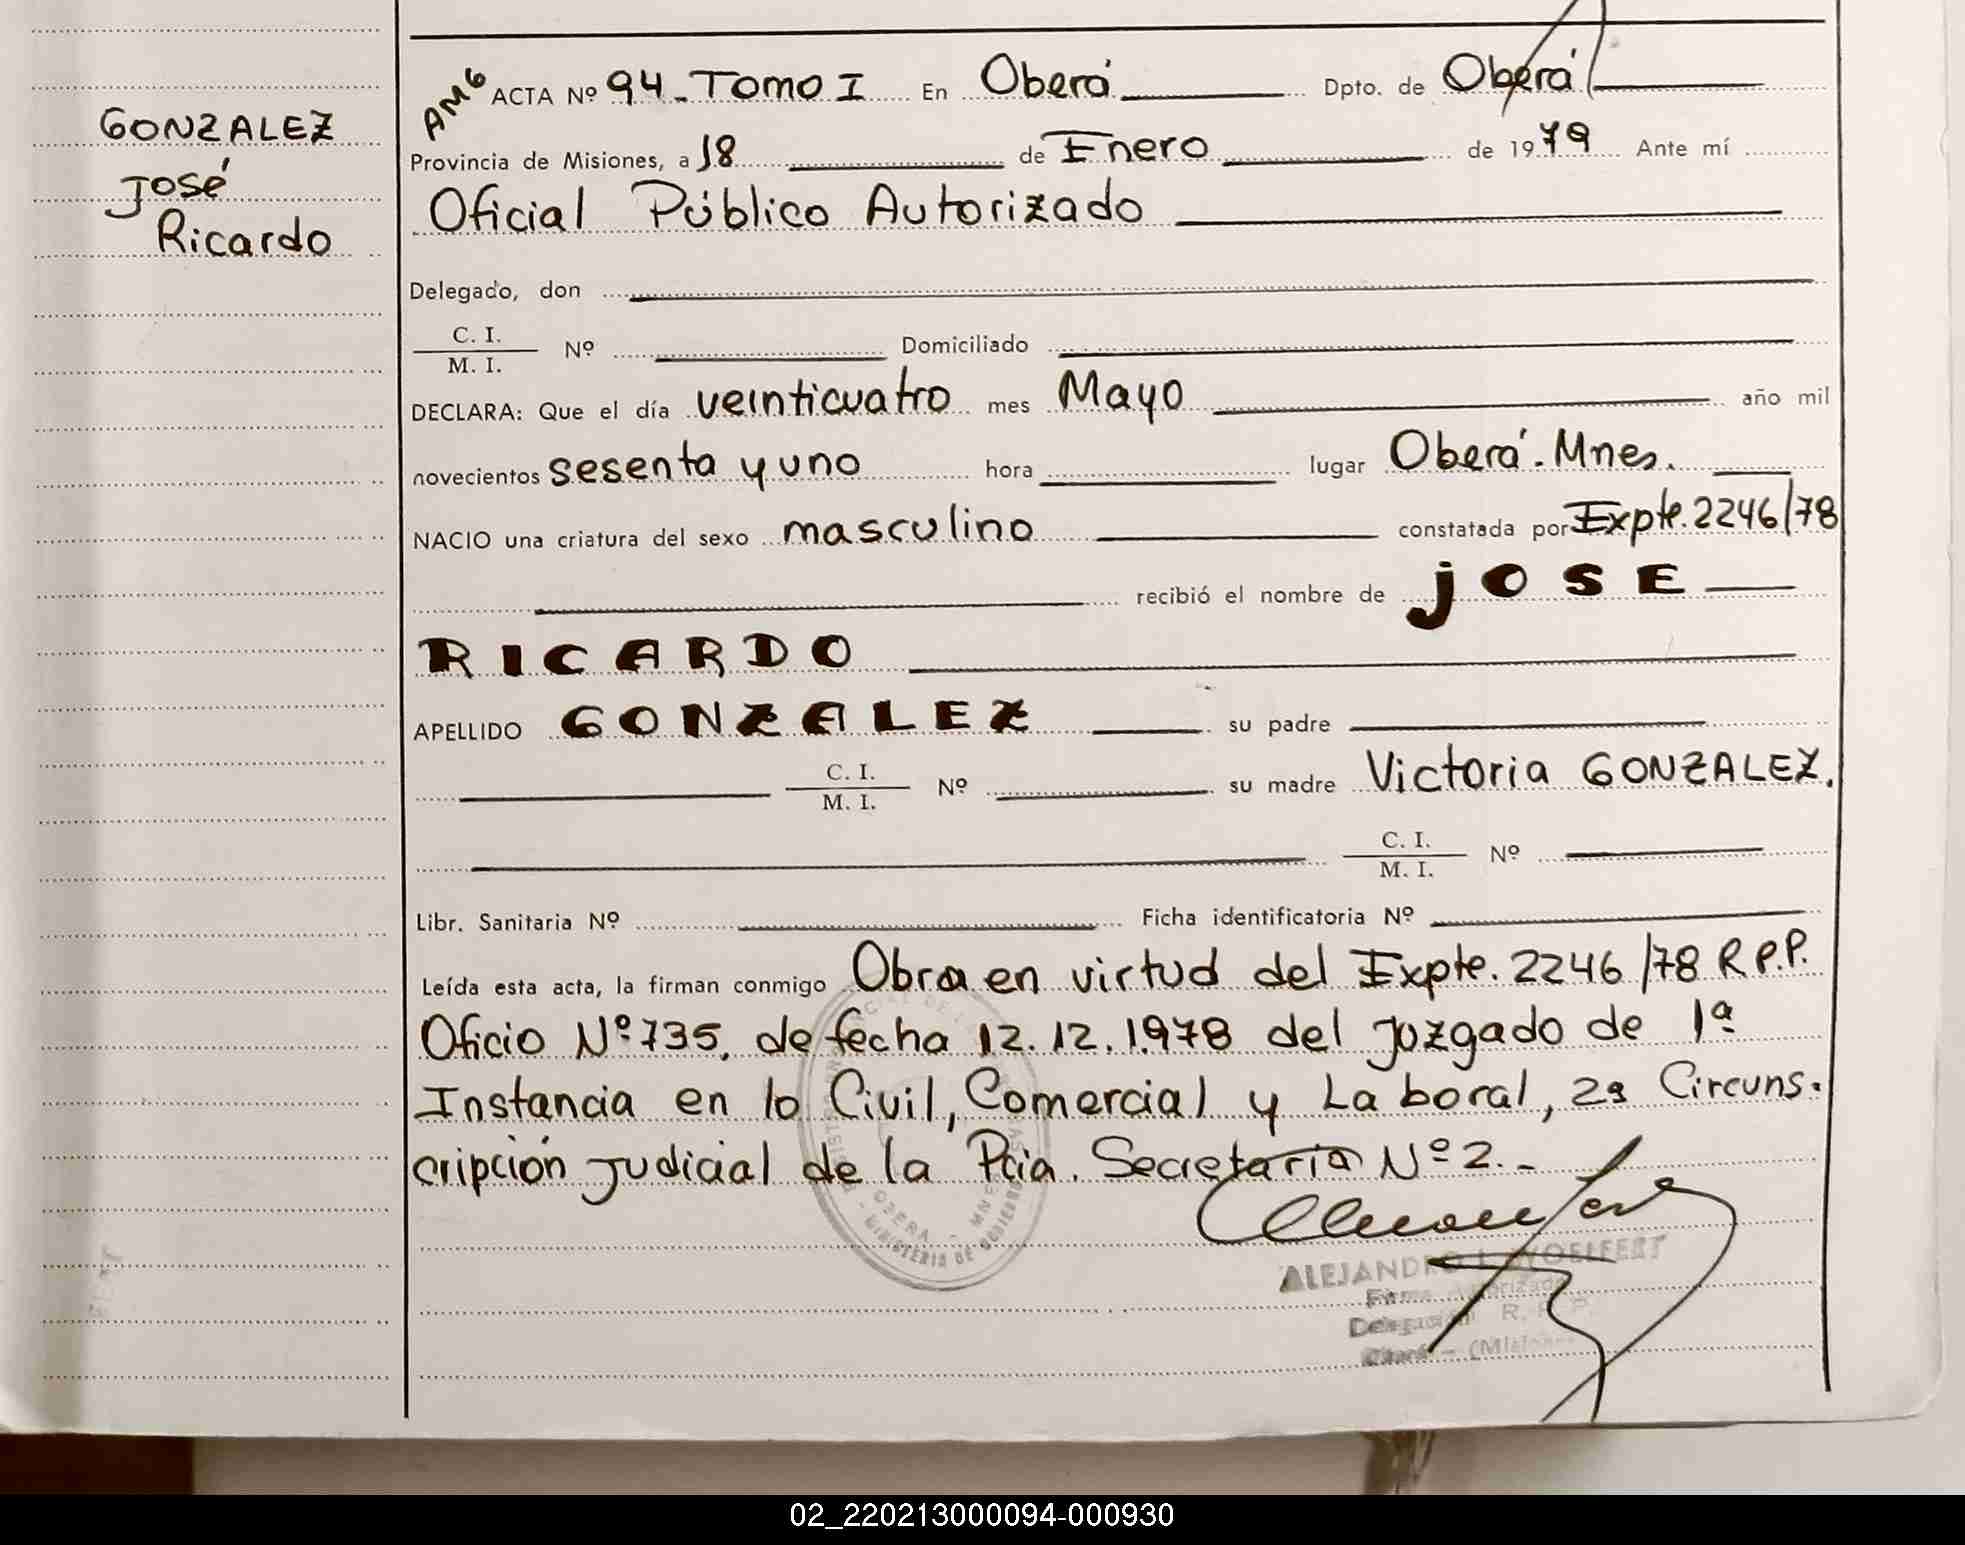 GONZALEZ
José
Ricardo
AMG
ACTA Nº 94 - Tomo I En Oberá Dpto. de Oberá
Provincia de Misiones, a 18 de Enero de 1979 Ante mí
Oficial Público Autorizado
Delegado, don
C. I.
M. I. Nº Domiciliado
DECLARA: Que el día veinticuatro mes Mayo año mil
novecientos sesenta y uno hora lugar Oberá. Mnes.
NACIO una criatura del sexo masculino constatada por Expte. 2246/78
recibió el nombre de JOSE
RICARDO
APELLIDO GONZALEZ su padre
C. I.
M. I. Nº su madre Victoria GONZALEZ.
C. I.
M. I. Nº
Libr. Sanitaria Nº Ficha identificatoria Nº
Leída esta acta, la firman conmigo Obra en virtud del Expte. 2246/78 R.P.P.
Oficio Nº 735, de fecha 12.12.1978 del Juzgado de 1ª
Instancia en lo Civil, Comercial y Laboral, 2ª Circuns-
cripción Judicial de la Pcia. Secretaría Nº 2.-
OBERA - MNES
MINISTERIO DE GOBIERNO
ALEJANDRO L. WOELFERT
Firma Autorizada
Delegación R. P. P.
Oberá - (Misiones
02_220213000094-000930